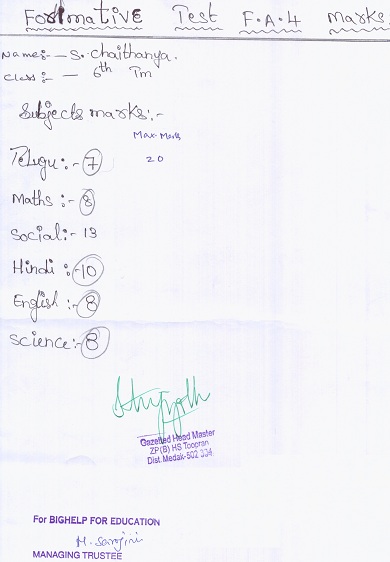 Formative Test F.A.4 Marks
Name:- S. Chaithanya.
Class:- 6th Tm
Subjects marks:-
Max-Marks
Telugu:- 7 20
Maths:- 8
Social:- 13
Hindi:- 10
English:- 8
Science:- 8
Gazetted Head Master
ZP(B) HS Toopran
Dist.Medak-502 334.
For BIGHELP FOR EDUCATION
M. Sarojini
MANAGING TRUSTEE